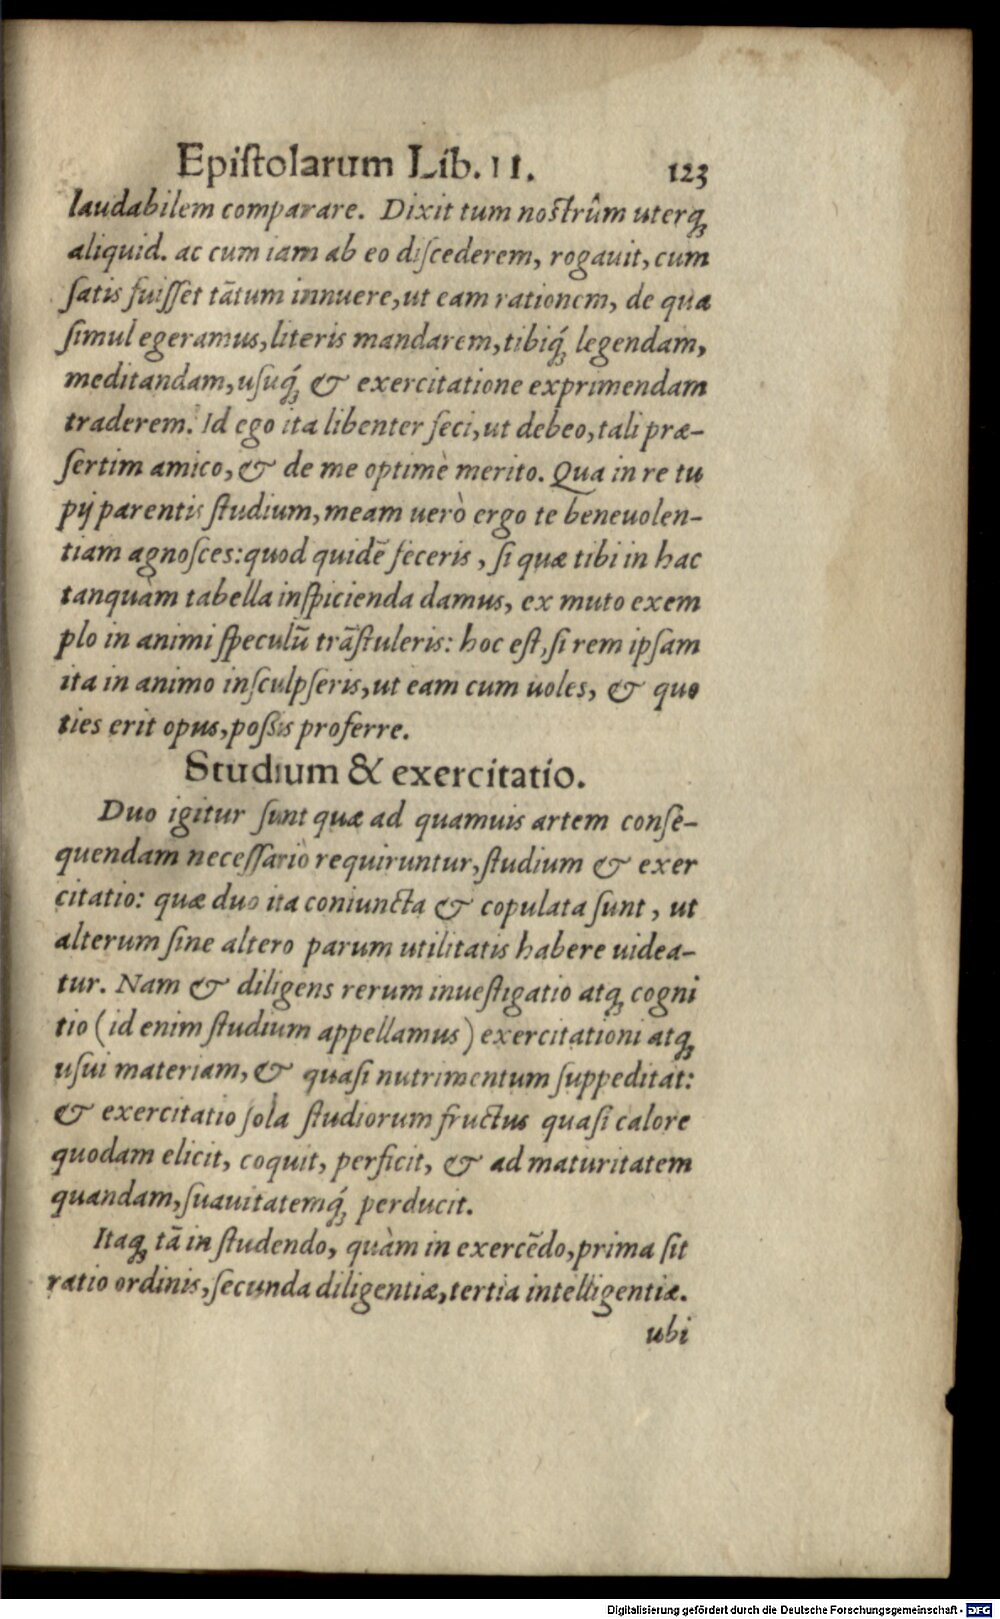 Epiſtolarum Lib. II. 123
laudabilem comparare. Dixit tum noſtrûm uterq́;
aliquid. ac cum iam ab eo diſcederem, rogauit, cum
ſatis fuiſſet tātum innuere, ut eam rationem, de qua
ſimul egeramus, literis mandarem, tibiq́; legendam,
meditandam, uſuq́; & exercitatione exprimendam
traderem. Id ego ita libenter feci, ut debeo, tali præ-
ſertim amico, & de me optimè merito. Qua in re tu
pij parentis ſtudium, meam uerò ergo te beneuolen-
tiam agnoſces: quod quidē feceris, ſi quæ tibi in hac
tanquàm tabella inſpicienda damus, ex muto exem
plo in animi ſpeculū trāſtuleris: hoc eſt, ſi rem ipſam
ita in animo inſculpſeris, ut eam cum uoles, & quo
ties erit opus, poſsis proferre.
Studium & exercitatio.
Duo igitur ſunt quæ ad quamuis artem conſe-
quendam neceſſariò requiruntur, ſtudium & exer
citatio: quæ duo ita coniuncta & copulata ſunt, ut
alterum ſine altero parum utilitatis habere uidea-
tur. Nam & diligens rerum inueſtigatio atq; cogni
tio (id enim ſtudium appellamus) exercitationi atq;
uſui materiam, & quaſi nutrimentum ſuppeditat:
& exercitatio ſola ſtudiorum fructus quaſi calore
quodam elicit, coquit, perficit, & ad maturitatem
quandam, ſuauitatemq́; perducit.
Itaq; tā in ſtudendo, quàm in exercēdo, prima ſit
ratio ordinis, ſecunda diligentiæ, tertia intelligentiæ.
ubi
Digitalisierung gefördert durch die Deutsche Forschungsgemeinschaft - DFG